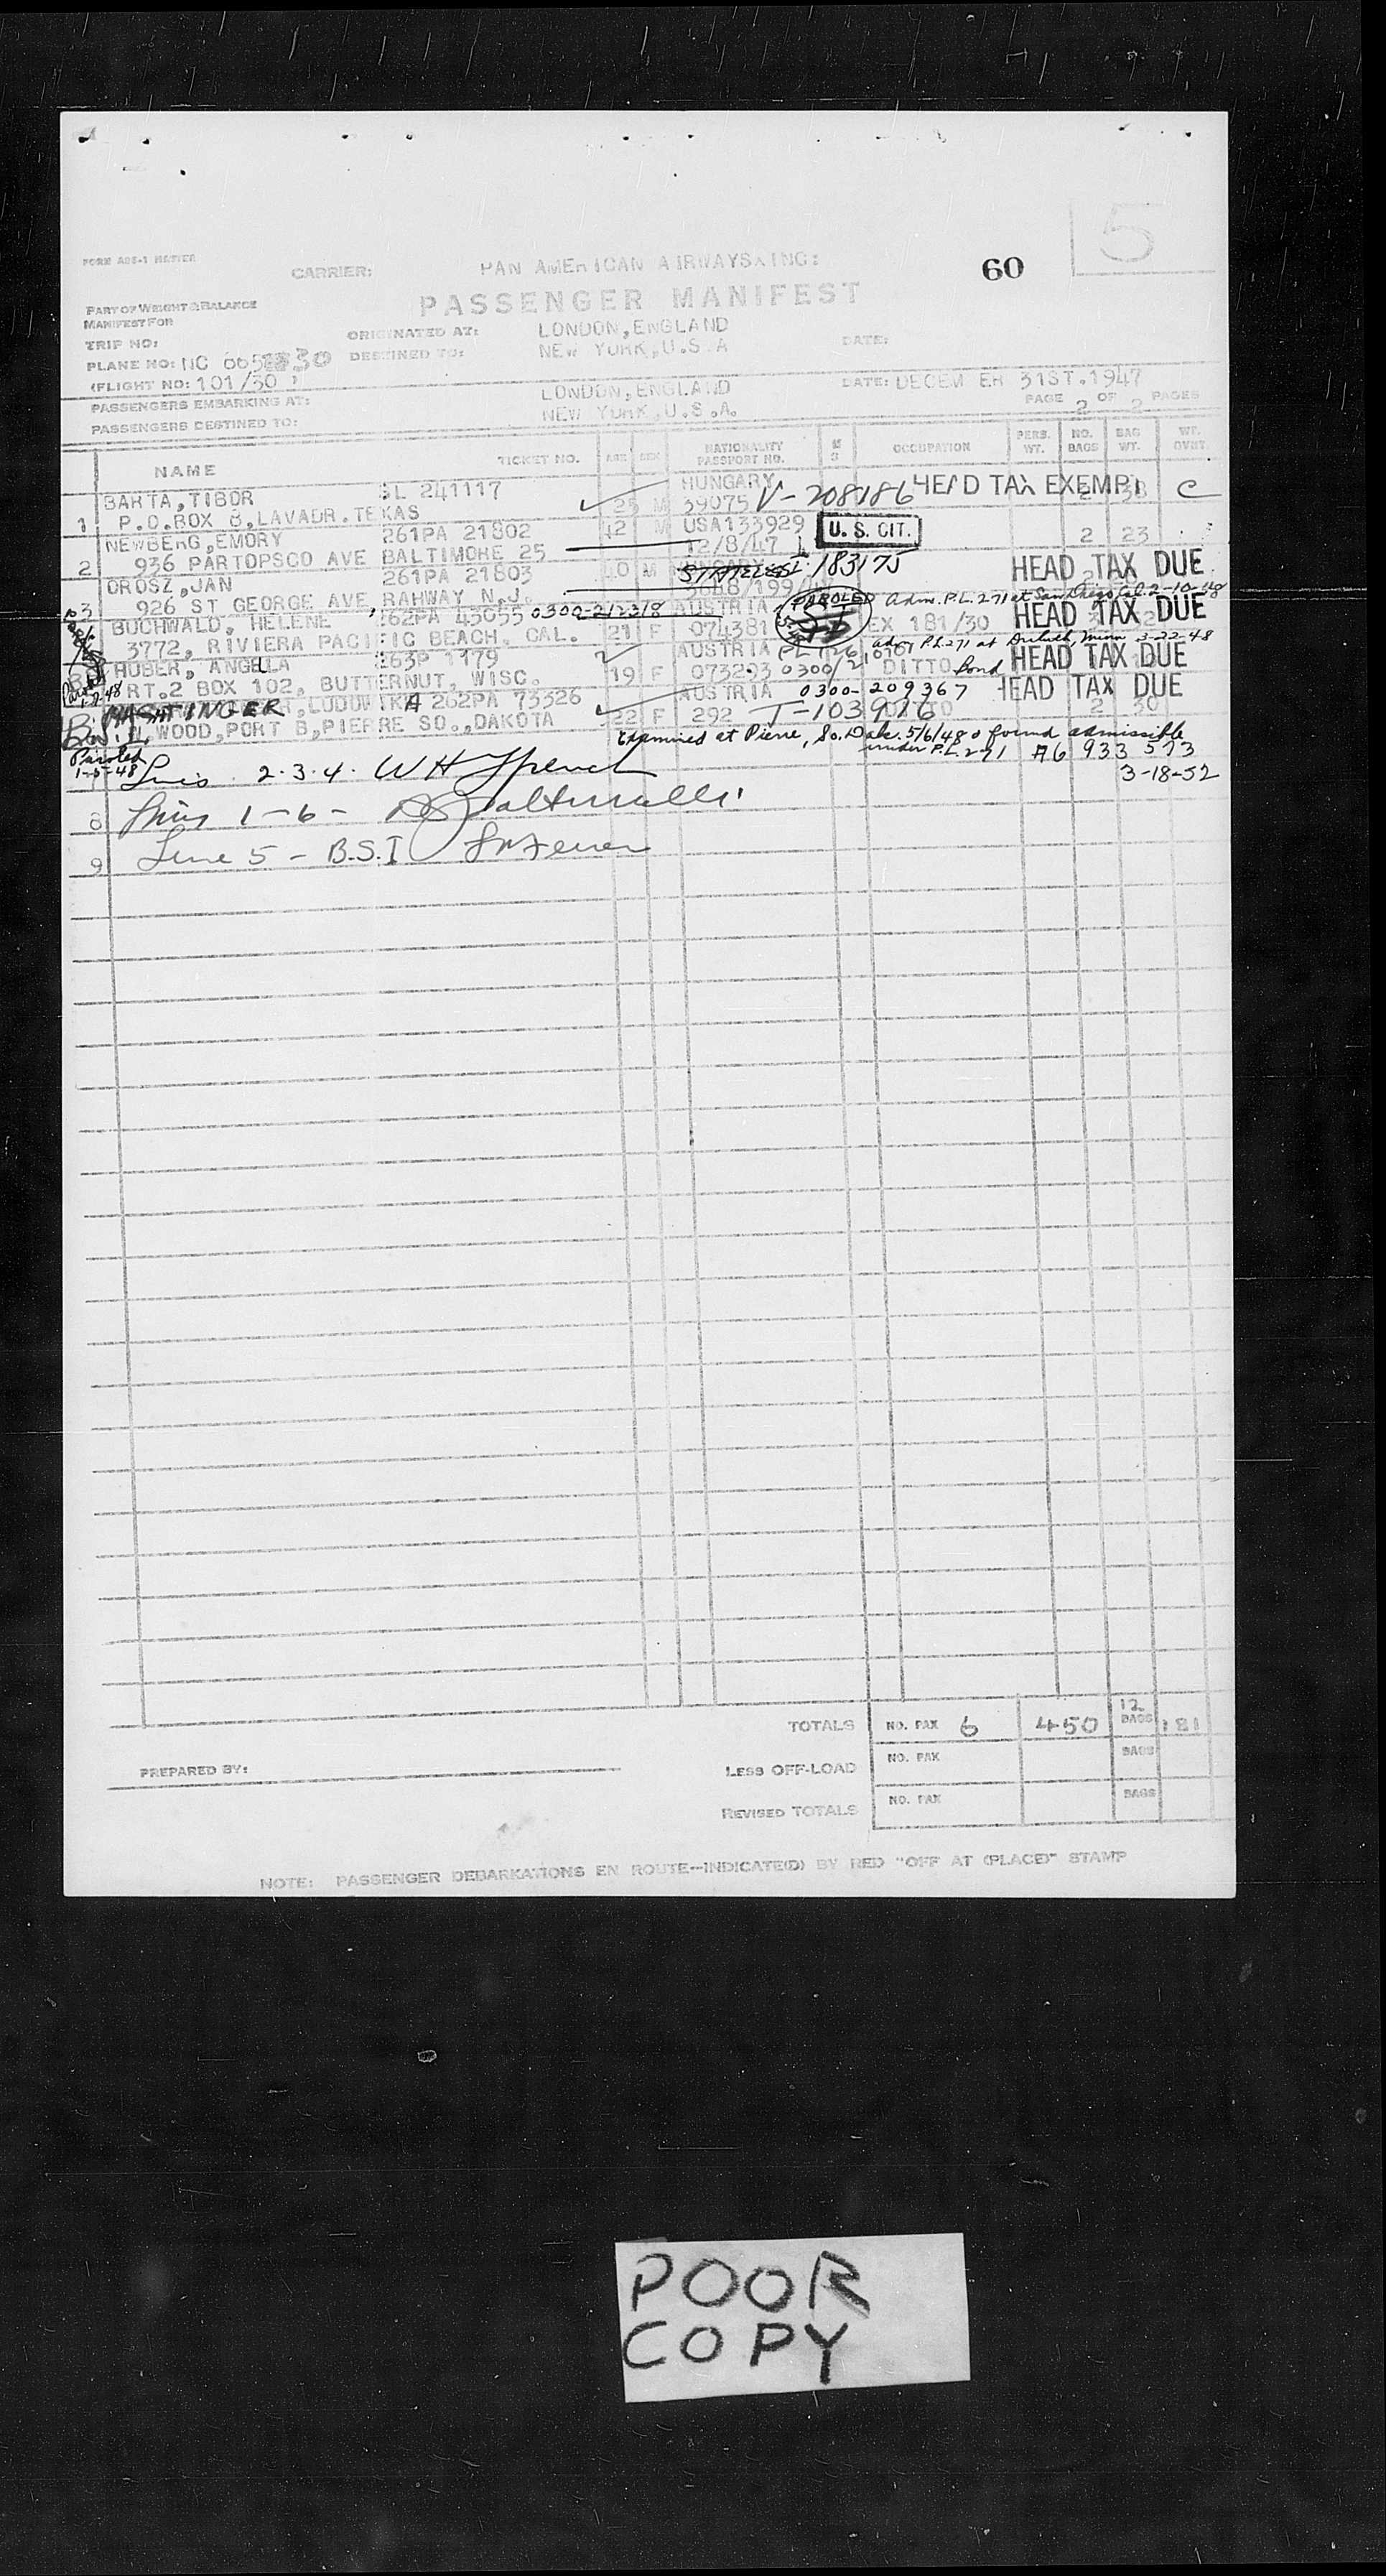 5
60
CARRIER: PAN AMERICAN AIRWAYS, INC:
PASSENGER MANIFEST
PART OF WEIGHT & BALANCE
MANIFEST FOR
TRIP NO:
ORIGINATED AT: LONDON, ENGLAND
DATE:
PLANE NO: NC
DESTINED TO: NEW YORK, U.S.A
(FLIGHT NO: 101/30 )
PASSENGERS EMBARKING AT: LONDON, ENGLAND
DATE: DECEM ER 31ST.1947
PASSENGERS DESTINED TO: NEW YORK, U.S.A.
PAGE 2 OF 2 PAGES
NAME TICKET NO. AGE SEX NATIONALITY PASSPORT NO. OCCUPATION PERS. WT. NO. BAGS BAG WT. WT. OVBT.
BARTA, TIBOR SL 241117 HUNGARY
1 P.O.BOX 8, LAVADR. TEXAS 25 M 39075 V-208186 HEAD TAX EXEMPT 2 C
NEWBERG, EMORY 261PA 21802 42 M USA133929 U. S. CIT. 2 23
2 936 PARTOPSCO AVE BALTIMORE 25 12/8/47
OROSZ, JAN 261PA 21803 40 M STATELESS 183175 HEAD TAX DUE
3 926 ST GEORGE AVE, RAHWAY N.J.
BUCHWALD, HELENE 262PA 45055 0300-212318 AUSTRIA PAROLED Adm. P.L. 271 at San Diego Cal. 2-10-48
3772, RIVIERA PACIFIC BEACH, CAL. 21 F 074381 EX 181/30 HEAD TAX DUE
HUBER, ANGELLA 263P 1179 AUSTRIA adm P.L. 271 at Duluth, Minn 3-22-48
RT.2 BOX 102, BUTTERNUT, WISC. 19 F 073293 0300/ DITTO Bond HEAD TAX DUE
MASTINGER LUDOWIKA 262PA 73326 AUSTRIA 0300-209367 HEAD TAX DUE
WOOD, PORT B, PIERRE SO., DAKOTA 22 F 292 T-103916 2 30
B.S.I.
Paroled
1-5-48
Examined at Pierre, So. Dak. 5/6/48 & found admissible
under P.L. 271 A6 933 573
3-18-52
Lines 2-3-4. W H Spencer
8 Lines 1-6-
9 Line 5 - B.S.I
TOTALS NO. PAX 6 450 12 BAGS 181
PREPARED BY:
LESS OFF-LOAD NO. PAX BAGS
REVISED TOTALS NO. PAX BAGS
NOTE: PASSENGER DEBARKATIONS EN ROUTE-INDICATE(D) BY RED "OFF AT (PLACE)" STAMP
POOR
COPY